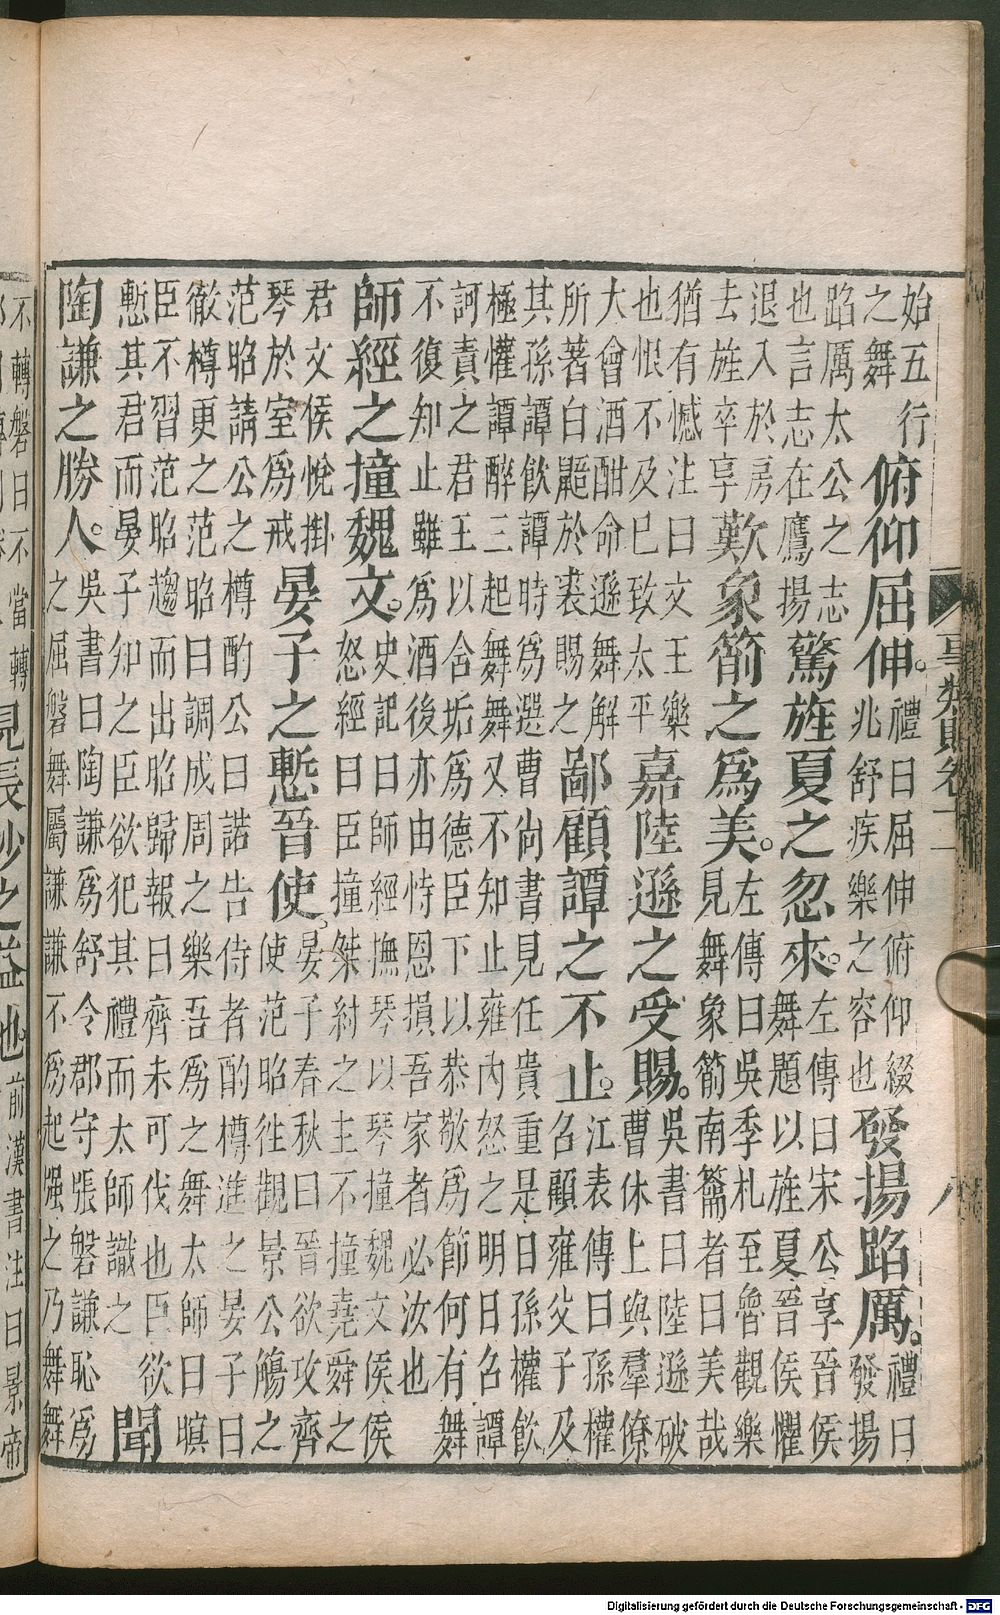 始五行之舞俯仰屈伸。禮曰屈伸俯仰綴兆舒疾樂之容也發揚蹈厲。禮曰發揚
蹈厲太公之志也言志在鷹揚驚旌夏之忽來。左傳曰宋公享晉侯舞題以旌夏晉侯懼
退入於房去旌卒享歎象箾之爲美。左傳曰吳季札至魯觀樂見舞象箾南籥者曰美哉
猶有憾注曰文王樂也恨不及已致太平嘉陸遜之受賜。吳書曰陸遜破曹休上與羣僚
大會酒酣命遜舞解所著白鼯於裘賜之鄙顧譚之不止。江表傳曰孫權名顧雍父子及
其孫譚飲譚時爲選曹尚書見任貴重是日孫權飲極懽譚醉三起舞舞又不知止雍內怒之明日名譚
訶責之君王以含垢爲德臣下以恭敬爲節何有舞不復知止雖爲酒後亦由恃恩損吾家者必汝也
師經之撞魏文。史記曰師經撫琴以琴撞魏文侯侯怒經曰臣撞桀紂之主不撞堯舜之
君文侯悅掛琴於室爲戒晏子之慙晉使。晏子春秋曰晉欲攻齊使范昭往觀景公觴之
范昭請公之樽酌公曰諾告侍者酌樽進之晏子曰徹樽更之范昭曰調成周之樂吾爲之舞太師曰瞑
臣不習范昭趨而出昭歸報曰齊未可伐也臣欲慙其君而晏子知之臣欲犯其禮而太師識之聞
陶謙之勝人。吳書曰陶謙爲舒令郡守張磐謙恥爲之屈磐舞屬謙謙不爲起強之乃舞舞
事類賦卷十一
八
不轉磐曰不當轉
見長沙之益地前漢書注曰景帝
Digitalisierung gefördert durch die Deutsche Forschungsgemeinschaft - DFG